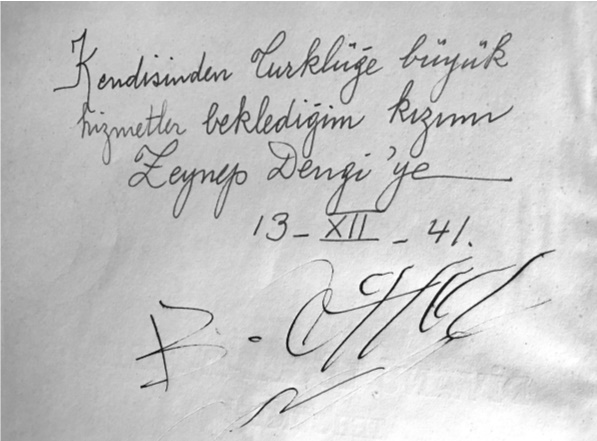 Kendisinden Türklüğe büyük
hizmetler beklediğim kızım
Zeynep Dengi'ye
13-XII-41.
B.